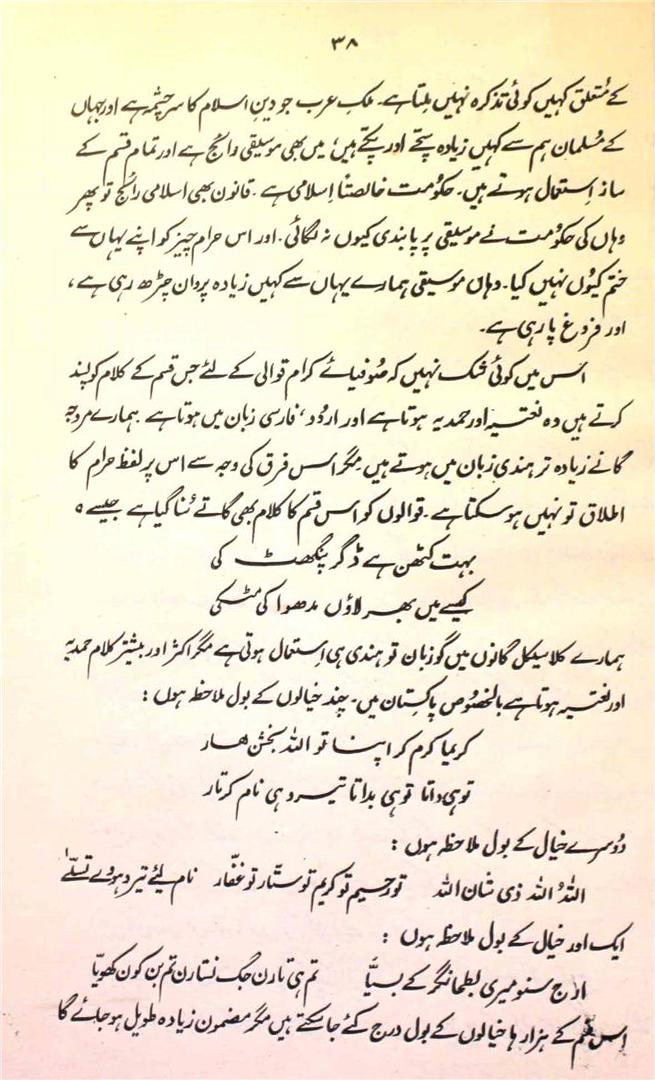 ۳۸
کے متعلق کہیں کوئی تذکرہ نہیں ملتا ہے۔ ملک عرب جو دینِ اسلام کا سرچشمہ ہے اور جہاں
کے مُسلمان ہم سے کہیں زیادہ سچے اور پکے ہیں، میں بھی موسیقی رائج ہے اور تمام قسم کے
ساز اِستعمال ہوتے ہیں۔ حکومت خالصتاً اِسلامی ہے۔ قانون بھی اسلامی رائج تو پھر
وہاں کی حکومت نے موسیقی پر پابندی کیوں نہ لگائی۔ اور اس حرام چیز کو اپنے یہاں سے
ختم کیوں نہیں کیا۔ وہاں موسیقی ہمارے یہاں سے کہیں زیادہ پروان چڑھ رہی ہے،
اور فروغ پا رہی ہے۔
اس میں کوئی شک نہیں کہ صُوفیائے کرام قوالی کے لئے جس قسم کے کلام کو پسند
کرتے ہیں وہ نعتیہ اور حمدیہ ہوتا ہے اور اردو، فارسی زبان میں ہوتا ہے۔ ہمارے مروجہ
گانے زیادہ تر ہندی زبان میں ہوتے ہیں مگر اس فرق کی وجہ سے اس پر لفظ حرام کا
اطلاق تو نہیں ہو سکتا ہے۔ قوالوں کو اس قسم کا کلام بھی گاتے سُنا گیا ہے جیسے ہ
بہت کٹھن ہے ڈگر پنگھٹ کی
کیسے میں بھر لاؤں مدھوا کی مٹکی
ہمارے کلاسیکل گانوں میں گو زبان تو ہندی ہی اِستعمال ہوتی ہے مگر اکثر اور بیشتر کلام حمدیہ
اور نعتیہ ہوتا ہے بالخصُوص پاکستان میں۔ چند خیالوں کے بول ملاحظہ ہوں:
کریما کرم کر اپنا تو اللہ بخشن ھار
توہی داتا توہی بداتا تیرو ہی نام کرتار
دُوسرے خیال کے بول ملاحظہ ہوں:
اللہُ اللہ ذی شان اللہ تو رحیم تو کریم تو ستّار تو غفّار نام لئے تیرو ہووے تسلّے
ایک اور خیال کے بول ملاحظہ ہوں:
ارج سنو میری بطحا نگر کے بسیّا تم ہی تارن جگ نستارن تم بن کون کھویّا
اس قسم کے ہزارہا خیالوں کے بول درج کئے جا سکتے ہیں مگر مضمون زیادہ طویل ہو جائے گا